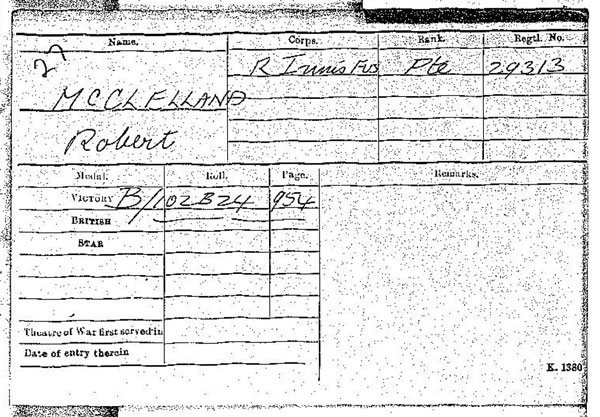 Name. Corps. Rank. Regtl. No.
27
R Innis Fus Pte 29313
MCCLELLAND
Robert
Medal. Roll. Page. Remarks.
VICTORY B/102 B24 954
BRITISH — — —
STAR
Theatre of War first served in
Date of entry therein
K. 1380